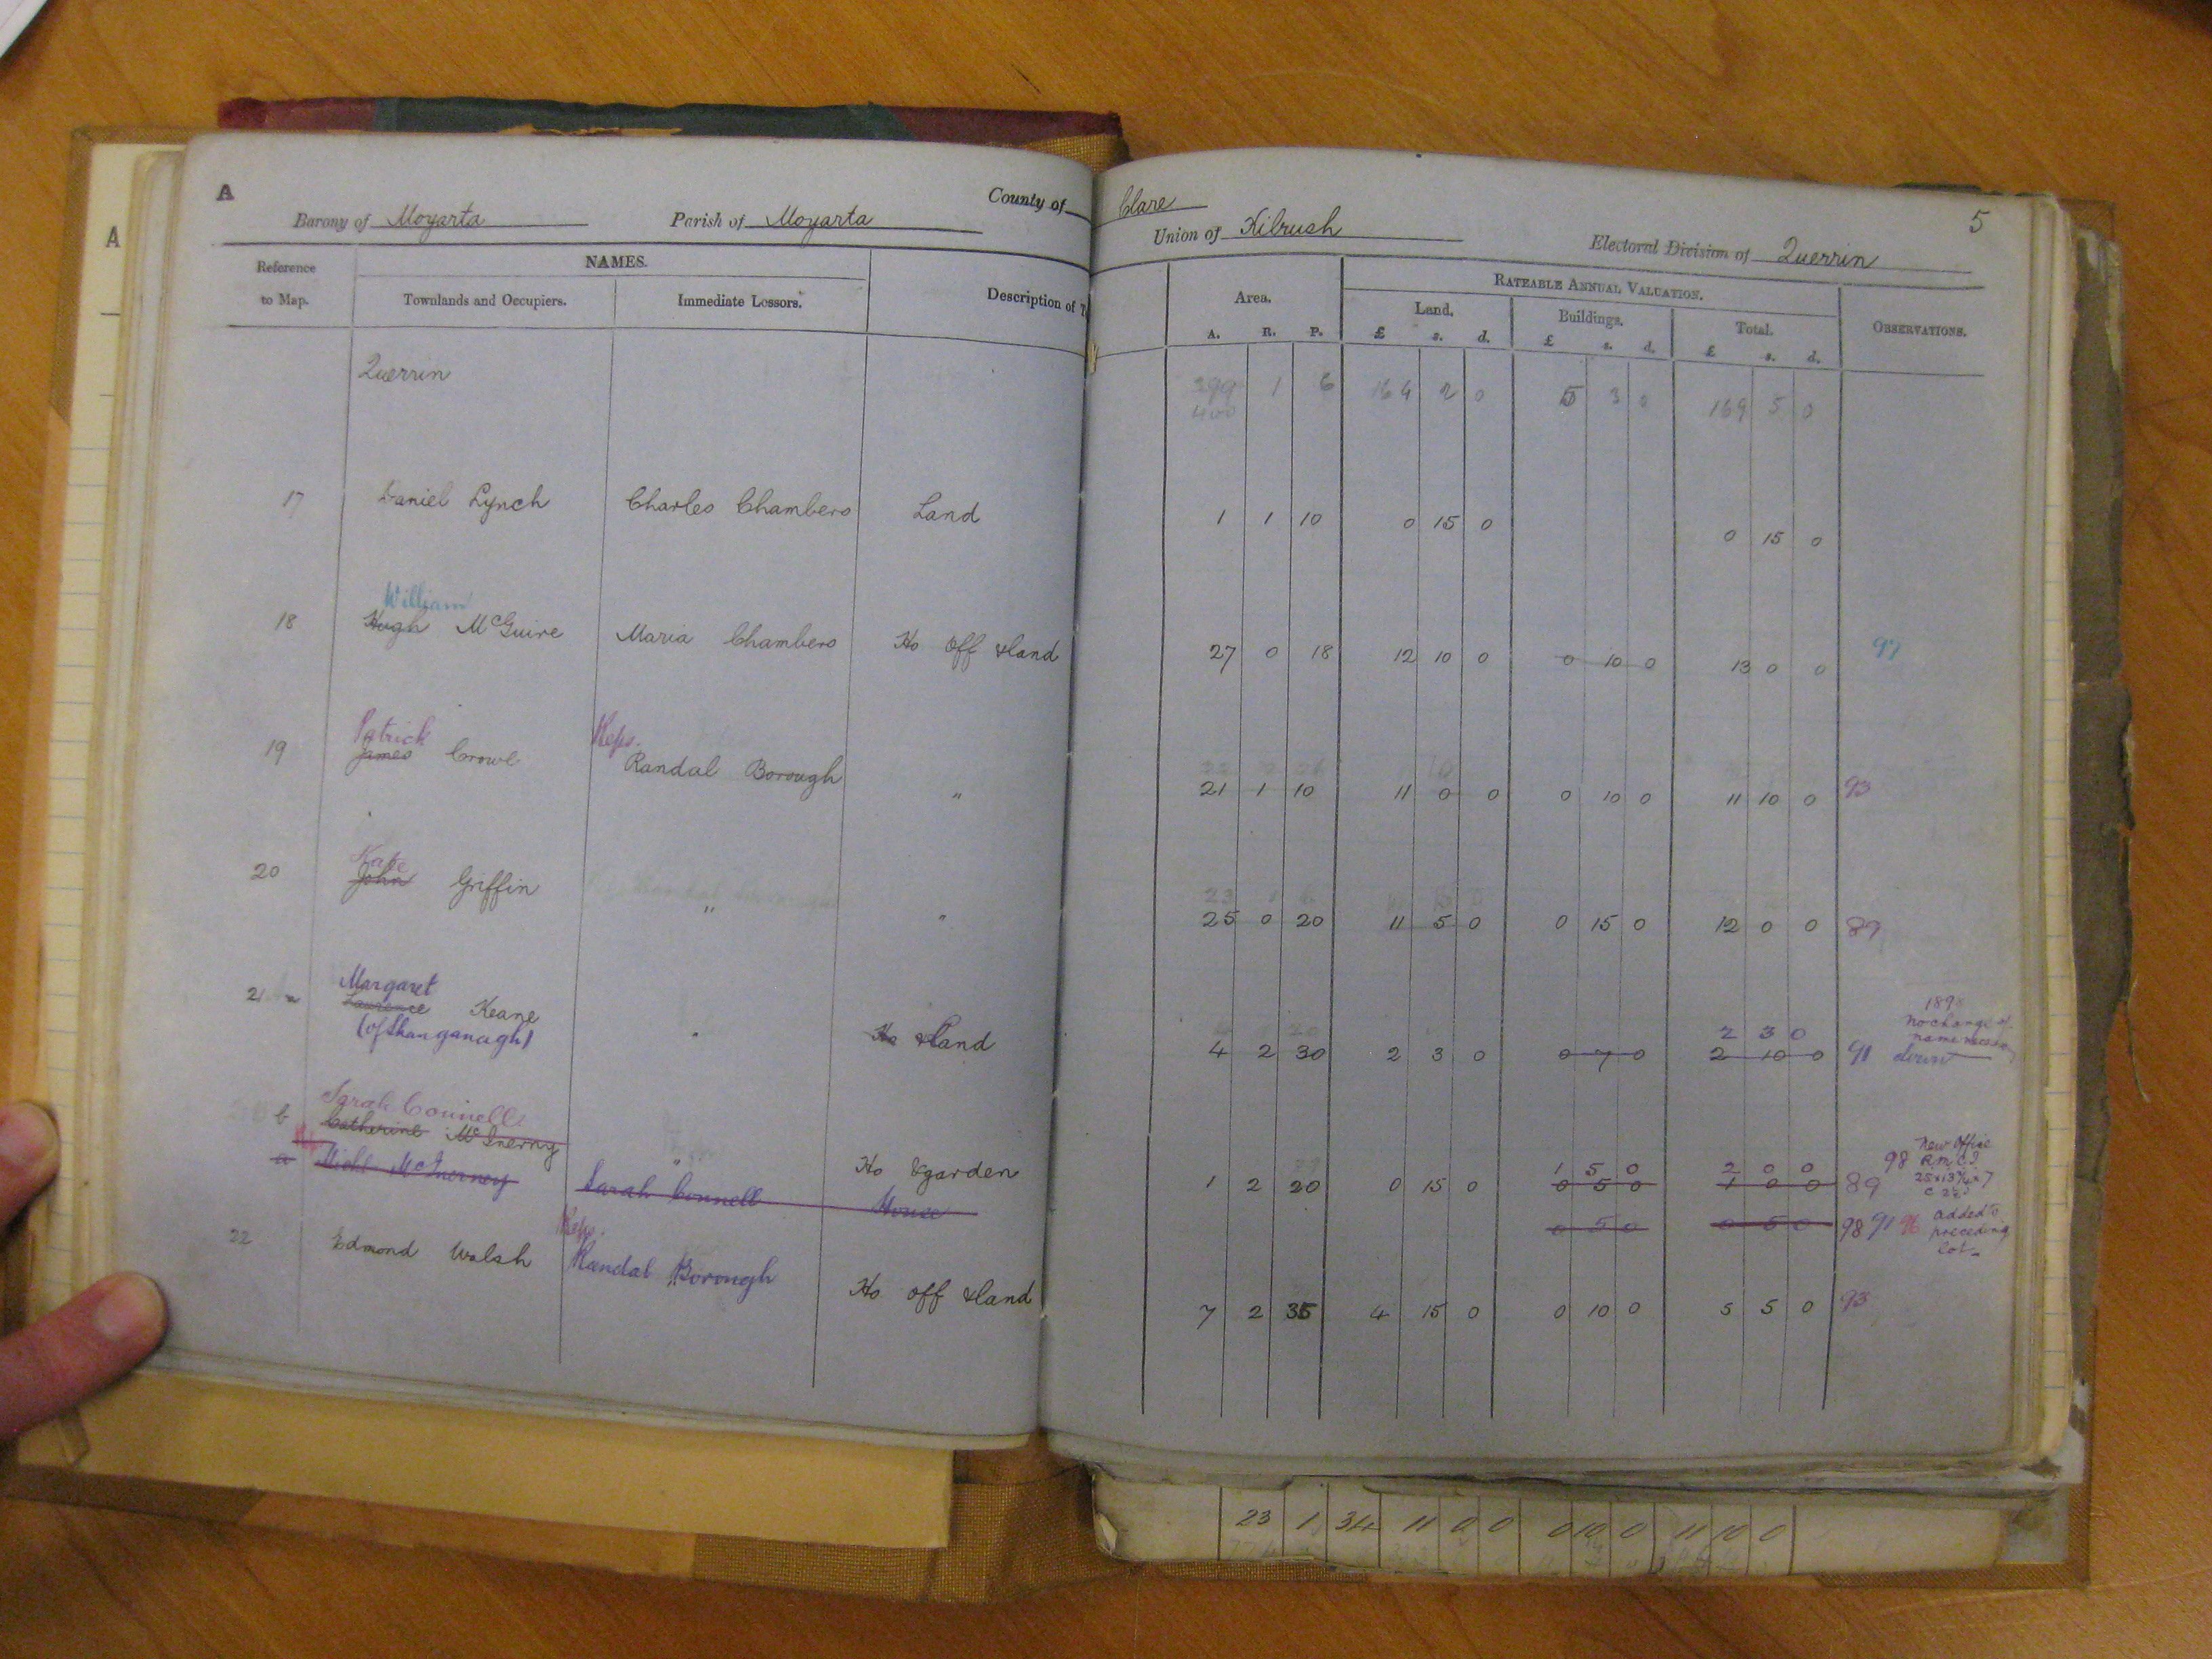 A
County of Clare
5
Barony of Moyarta Parish of Moyarta Union of Kilrush Electoral Division of Querrin
Reference to Map.
NAMES.
Townlands and Occupiers. Immediate Lessors.
Description of T
Area.
A. R. P.
RATEABLE ANNUAL VALUATION.
Land. Buildings. Total.
£ s. d. £ s. d. £ s. d.
OBSERVATIONS.
Querrin 399 1 6 164 2 0 5 3 0 169 5 0
400
17 Daniel Lynch Charles Chambers Land 1 1 10 0 15 0 0 15 0
William
18 Hugh McGuire Maria Chambers Ho off & land 27 0 18 12 10 0 0 10 0 13 0 0 97
Patrick Reps.
19 James Crowe Randal Borough " 21 1 10 11 0 0 0 10 0 11 10 0 93
Kate
20 John Griffin " " 25 0 20 11 5 0 0 15 0 12 0 0 89
Margaret 2 3 0
21 a Laurence Keane " Ho & land 4 2 30 2 3 0 0 7 0 2 10 0 91 down
(of Shanganagh)
189
no change of
name
Sarah Connell 1 5 0 2 0 0
b Catherine McInerny " Ho & garden 1 2 20 0 15 0 0 5 0 1 0 0 89
98 New office
R.M.C.I.
a Michl McInerney Sarah Connell House 0 5 0 0 5 0 98 91 96 added to
preceding
lot
Reps.
22 Edmond Walsh Randal Borough Ho off & land 7 2 35 4 15 0 0 10 0 5 5 0 93
23 1 34 11 0 0 0 10 0 11 10 0
A